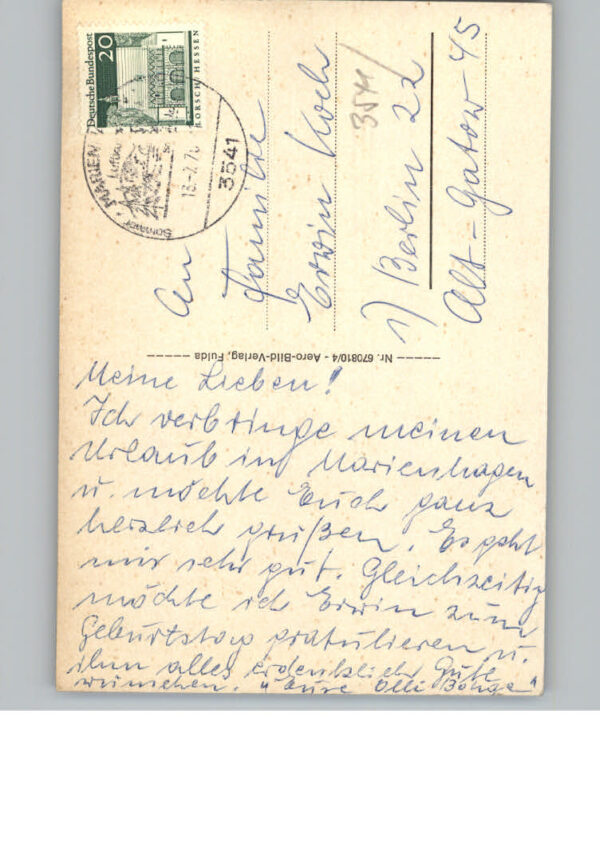 Deutsche Bundespost
20
LORSCH / HESSEN
3541
An
Familie
Erwin Koch
3541
1) Berlin 22
Alt-Gatow 45
Nr. 670810/4 - Aero-Bild-Verlag, Fulda
Meine Lieben!
Ich verbringe meinen
Urlaub in Marienhagen
u. möchte Euch ganz
herzlich grüßen. Es geht
mir sehr gut. Gleichzeitig
möchte ich Erwin zum
Geburtstag gratulieren u.
ihm alles erdenklich Gute
wünschen. "Eure Olli